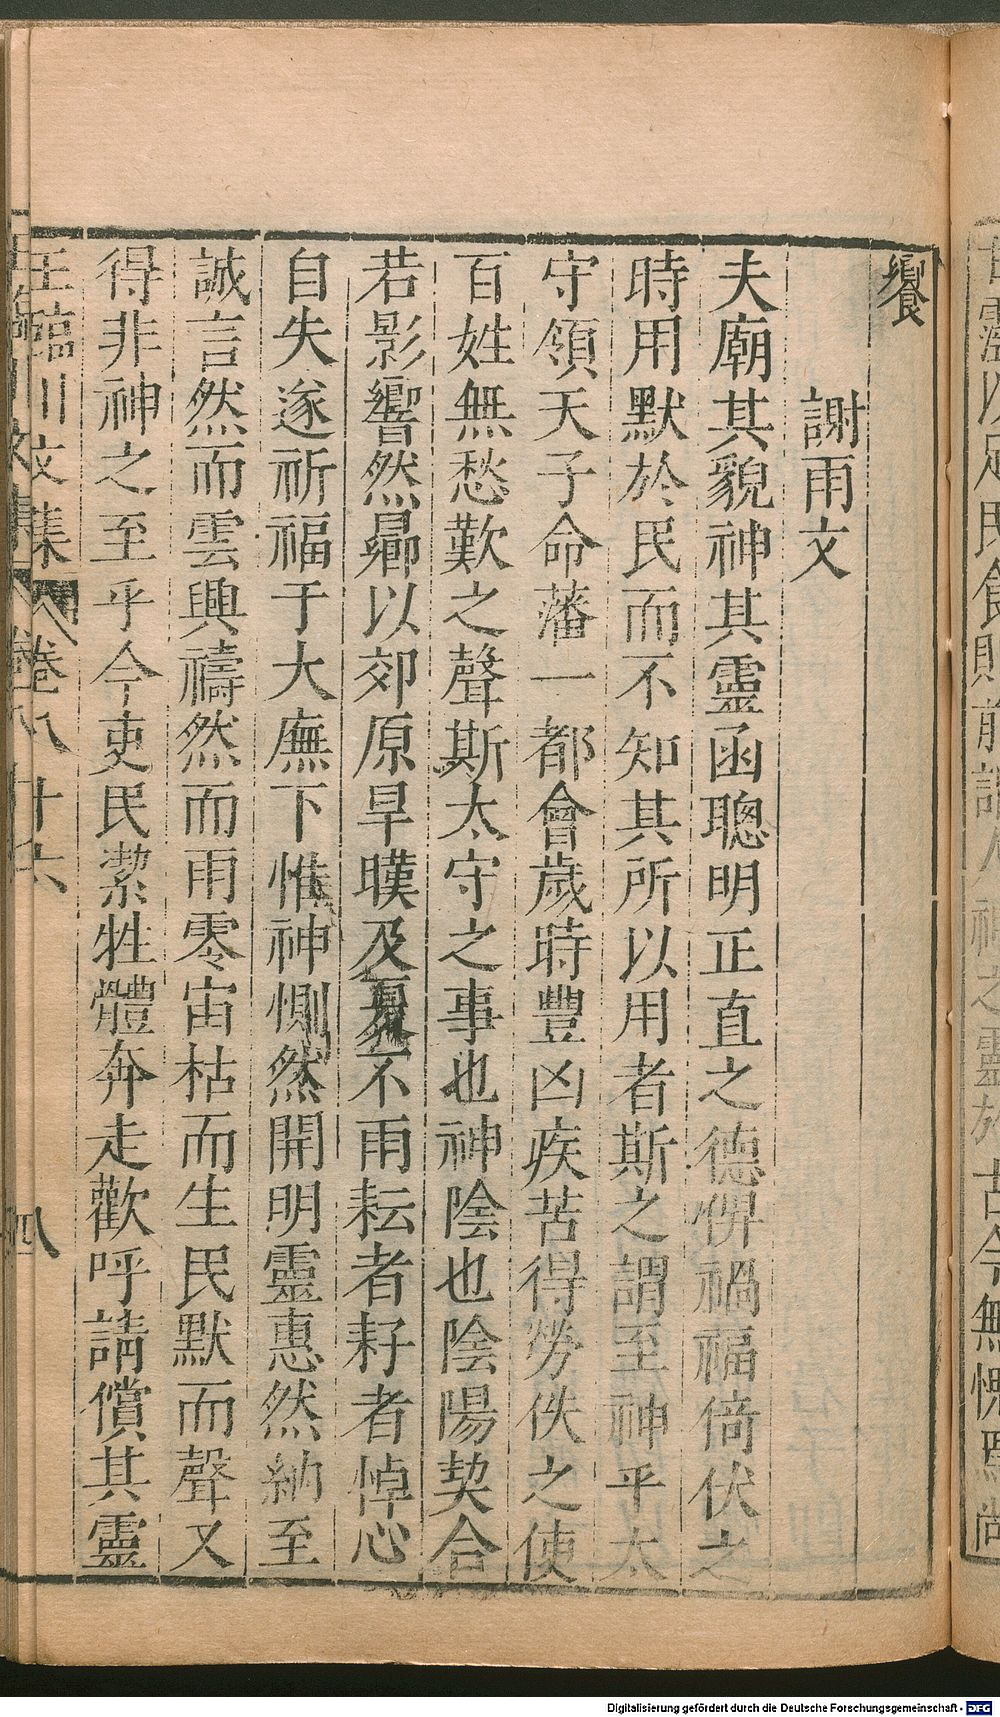 饗
謝雨文
夫廟其貌神其靈函聰明正直之德俾禍福倚伏之
時用默於民而不知其所以用者斯之謂至神乎太
守領天子命藩一都會歲時豐凶疾苦得勞佚之使
百姓無愁歎之聲斯太守之事也神陰也陰陽契合
若影響然曏以郊原旱暵及夏不雨耘者耔者悼心
自失遂祈福于大廡下惟神惻然開明靈惠然納至
誠言然而雲興禱然而雨零宙枯而生民默而聲又
得非神之至乎今吏民潔牲體奔走歡呼請償其靈
王臨川文集 卷八十六 八
Digitalisierung gefördert durch die Deutsche Forschungsgemeinschaft - DFG